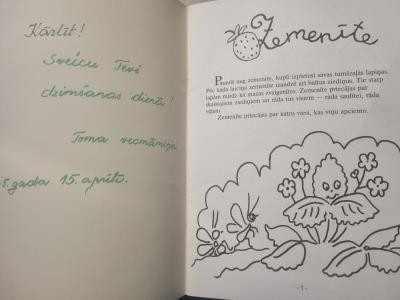 Kārlīt!
Sveicu Tevi
dzimšanas dienā!
Toma vecmāmiņa
5. gada 15. aprīlī.
Zemenīte
Pasaulē aug zemenīte, kupli izpletusi savas tumšzaļās lapiņas.
Pēc kāda laiciņa zemenīte izaudzē arī baltus ziediņus. Tie starp
lapām mirdz kā mazas zvaigznītes. Zemenīte priecājas par
skaistajiem ziediņiem un rāda tos visiem — rāda saulītei, rāda
vējam.
Zemenīte priecājas par katru viesi, kas viņu apciemo.
- 1 -